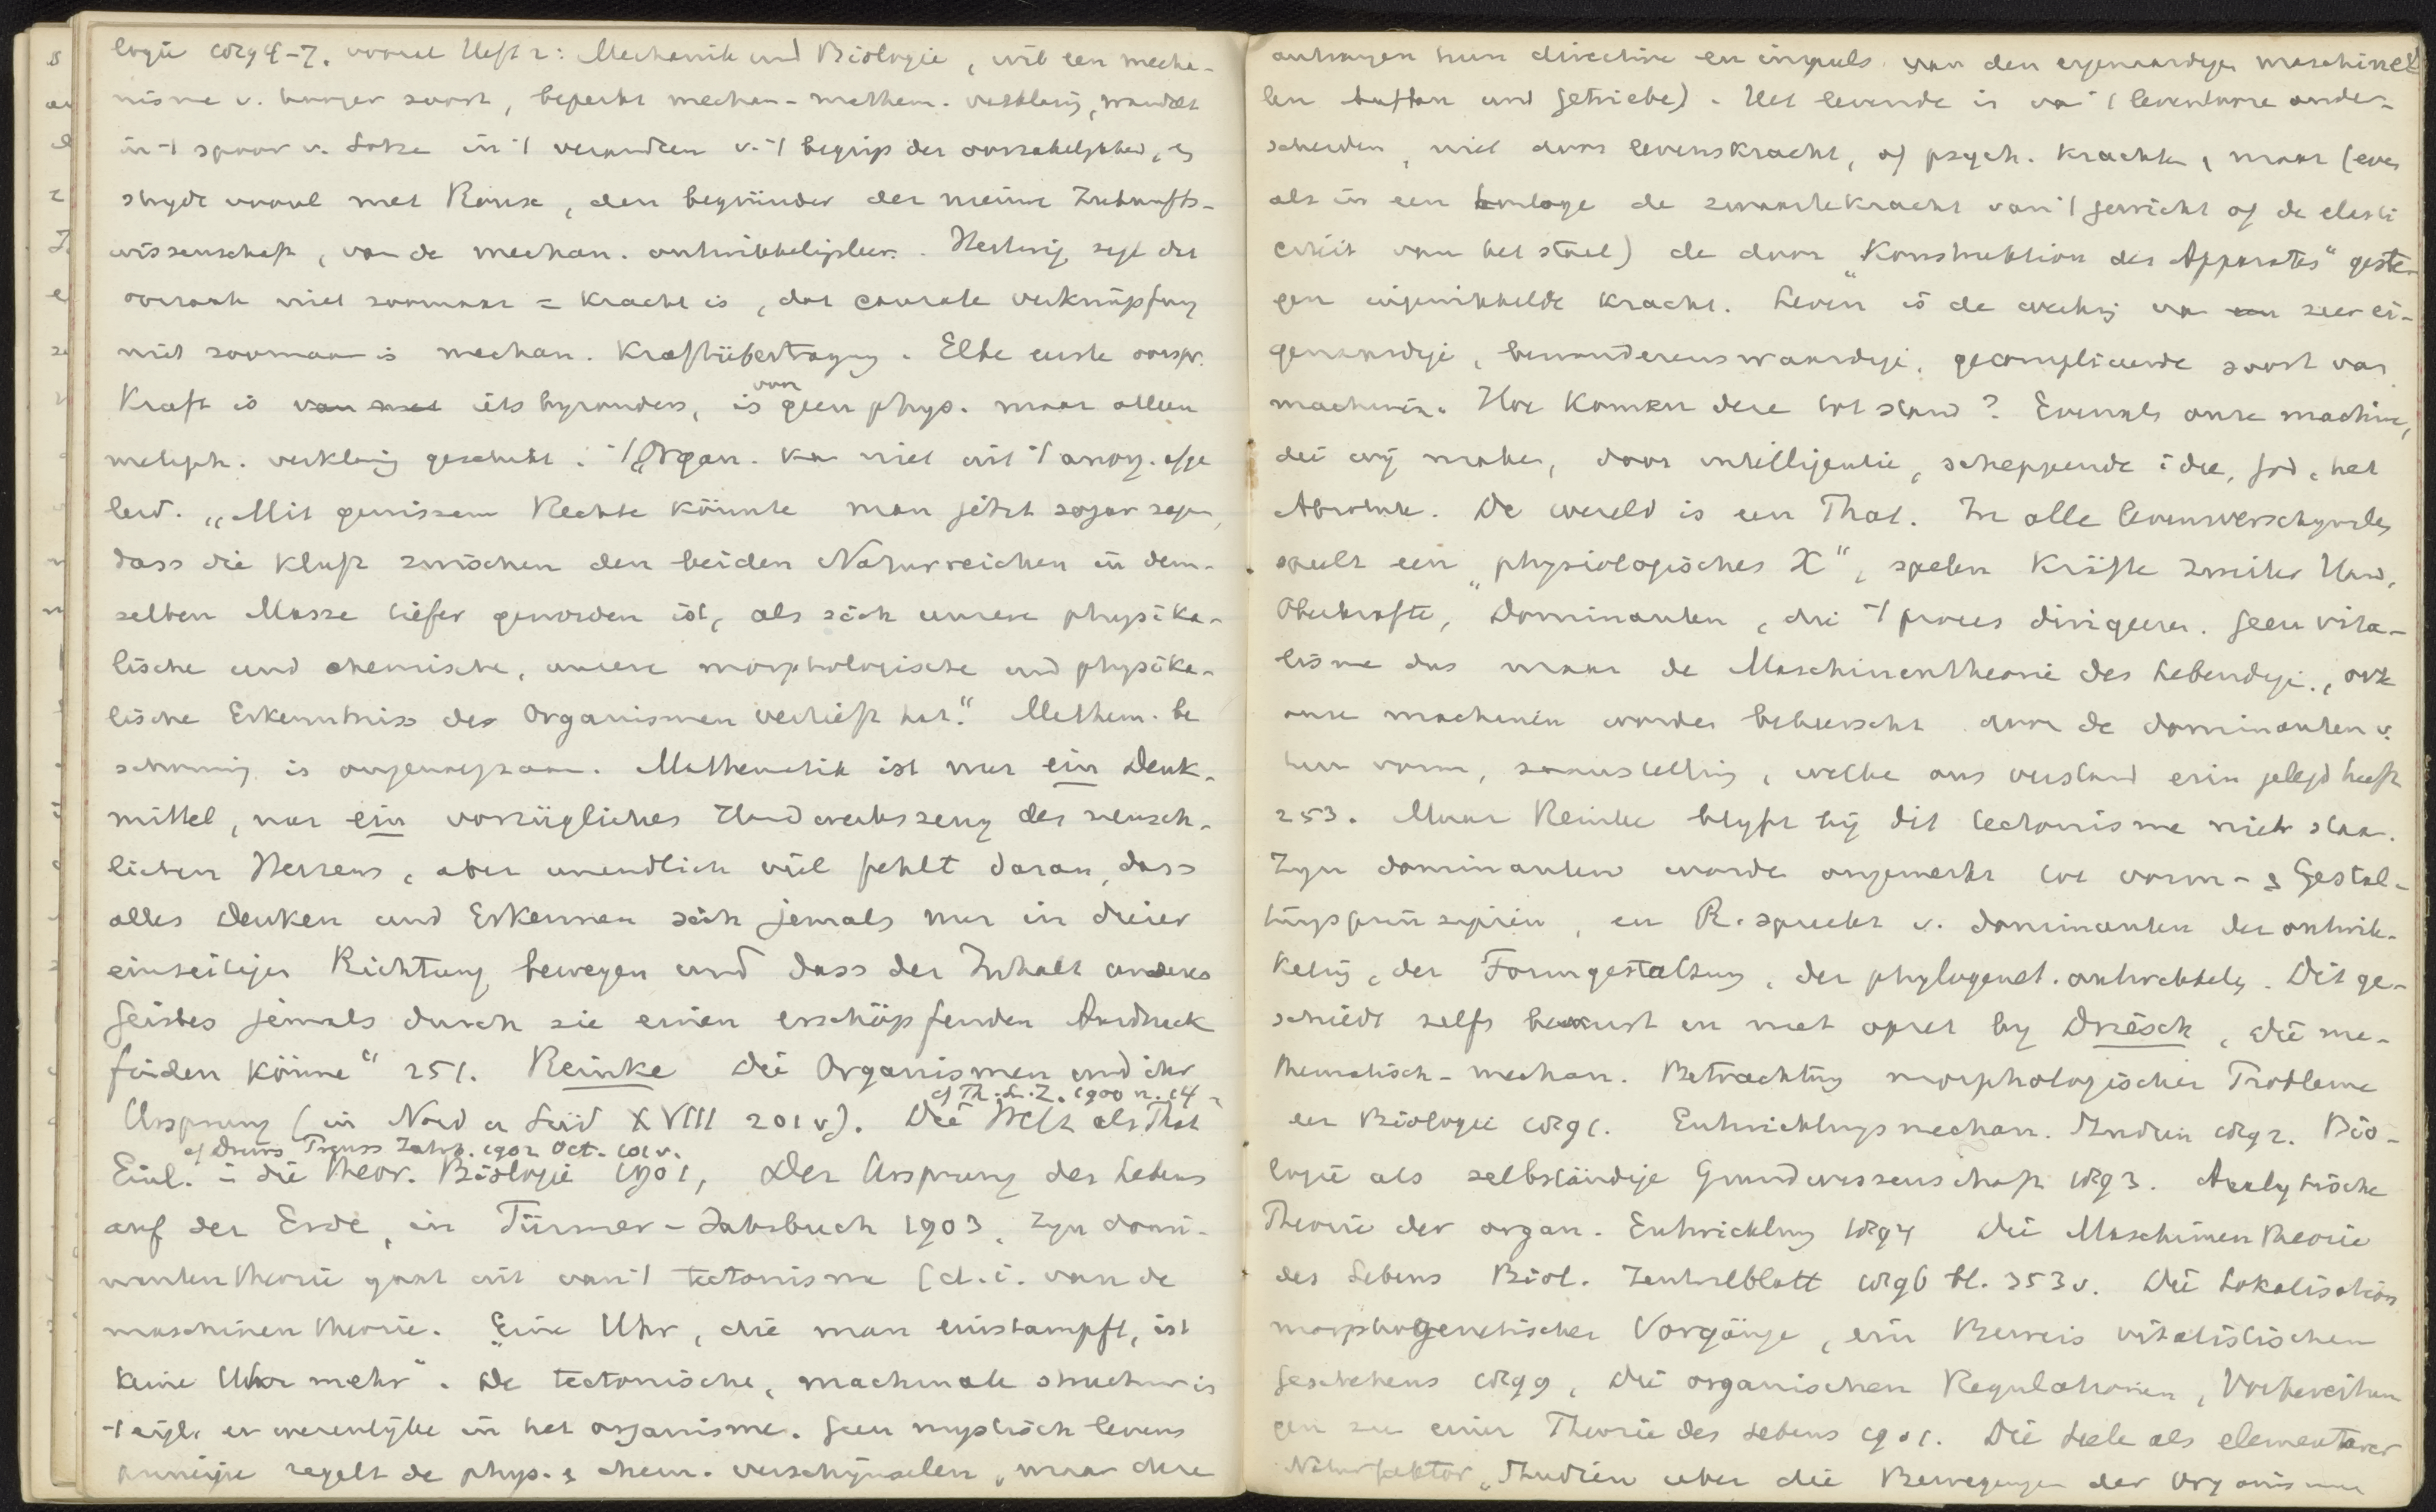 logie 1894-7. vooral Heft 2: Mechanik und Biologie, wil een mecha-
nisme v. hooger soort, beperkt mechan-mathem. verklaring, wandelt
in 't spoor v. Lotze in 't veranderen v. 't begrip der oorzakelijkheid, en
strydt vooral met Roux, den begründer der neuen Zukunfts-
wissenschaft, van de mechan. ontwikkelingsleer. Hertwig zegt dat
oorzaak niet zoomaar = kracht is, dat causale verknüpfung
niet zoomaar is mechan. Kraftübertragung. Elke eerste oorspr.
Kraft is iets byzonders, is van geen phys. maar alleen
metaph. verklaring geschikt. 't Organ. kan niet uit 't anorg. afge
leid. „Mit gewissem Rechte könnte man jetzt sogar sagen,
dass die Kluft zwischen den beiden Naturreichen in dem-
selben Masse tiefer geworden ist, als sich unsere physika-
lische und chemische, unsere morphologische und physika-
lische Erkenntniss der Organismen vertieft hat." Mathem. be
schouwing is ongenoegzaam. Mathematik ist nur ein Denk-
mittel, nur ein vorzügliches Handwerkszeug des mensch-
lichen Herzens, aber unendlich viel fehlt daran, dass
alles Denken und Erkennen sich jemals nur in dieser
einseitigen Richtung bewegen und dass der Inhalt unseres
Geistes jemals durch sie einen erschöpfenden Ausdruck
finden könne" 251. Reinke Die Organismen und ihr
cf Th. L. Z. 1900 n. 14
Ursprung (in Nord u Süd XVIII 201 v). Die Welt als That
cf Drews Preuss Jahrb. 1902 Oct. 101 v.
Einl. in die theor. Biologie 1901, Der Ursprung des Lebens
auf der Erde, in Türmer-Jahrbuch 1903. Zyn domi-
nantentheorie gaat uit van 't tectonisme (d.i. van de
maschinentheorie. „Eine Uhr, die man einstampft, ist
keine Uhr mehr". De tectonische, machinale structuur is
't eig. en wezenlyke in het organisme. Geen mystisch levens
principe regelt de phys. & chem. verschijnselen, maar deze
ontvangen hun directive en impuls van den eigenaardigen maschinel
len und Getriebe). Het levende is van 't levenlooze onder-
scheiden, niet door levenskracht, of psych. krachten, maar (even
als in een horloge de zwaartekracht van 't gewicht of de elasti
citeit van het staal) de door „Konstruktion des Apparates" geste
gen ingewikkelde kracht. Leven is de werking van zeer ei-
genaardige, bewonderenswaardige, gecompliceerde soort van
machinerie. Hoe komen deze tot stand? Evenals onze machine,
die wij maken, door intelligentie, scheppende idee, God, het
Absolute. De wereld is een That. In alle levensverschynselen
speelt een „physiologisches X", spelen Kräfte zweiter Hand,
Oberkräfte, Dominanten, die 't proces dirigeeren. Geen vita-
lisme dus maar de Maschinentheorie des Lebendigen, ook
onze machinen worden beheerscht door de dominanten v.
hun vorm, samenstelling, welke ons verstand erin gelegd heeft
253. Maar Reinke blyft bij dit tectonisme niet staan.
Zyn dominanten worden omgewerkt tot vorm- & Gestal-
tungsprinzipien, en R. spreekt v. dominanten der ontwik-
keling, der Formgestaltung, der phylogenet. ontwikkeling. Dit ge-
schiedt zelfs bewust en met opzet by Driesch, Die ma-
thematisch-mechan. Betrachtung morphologischer Probleme
der Biologie 1891. Entwicklungsmechan. Studien 1892. Bio-
logie als selbständige Grundwissenschaft 1893. Analytische
Theorie der organ. Entwicklung 1894 Die Maschinentheorie
des Lebens Biol. Zentralblatt 1896 bl. 353 v. Die Lokalisation
morphogenetischer Vorgänge, ein Beweis vitalistischen
Geschehens 1899, Die organischen Regulationen, Vorbereitun
gen zu einer Theorie des Lebens 1901. Die Seele als elementarer
Naturfaktor, Studien über die Bewegungen der Organismen